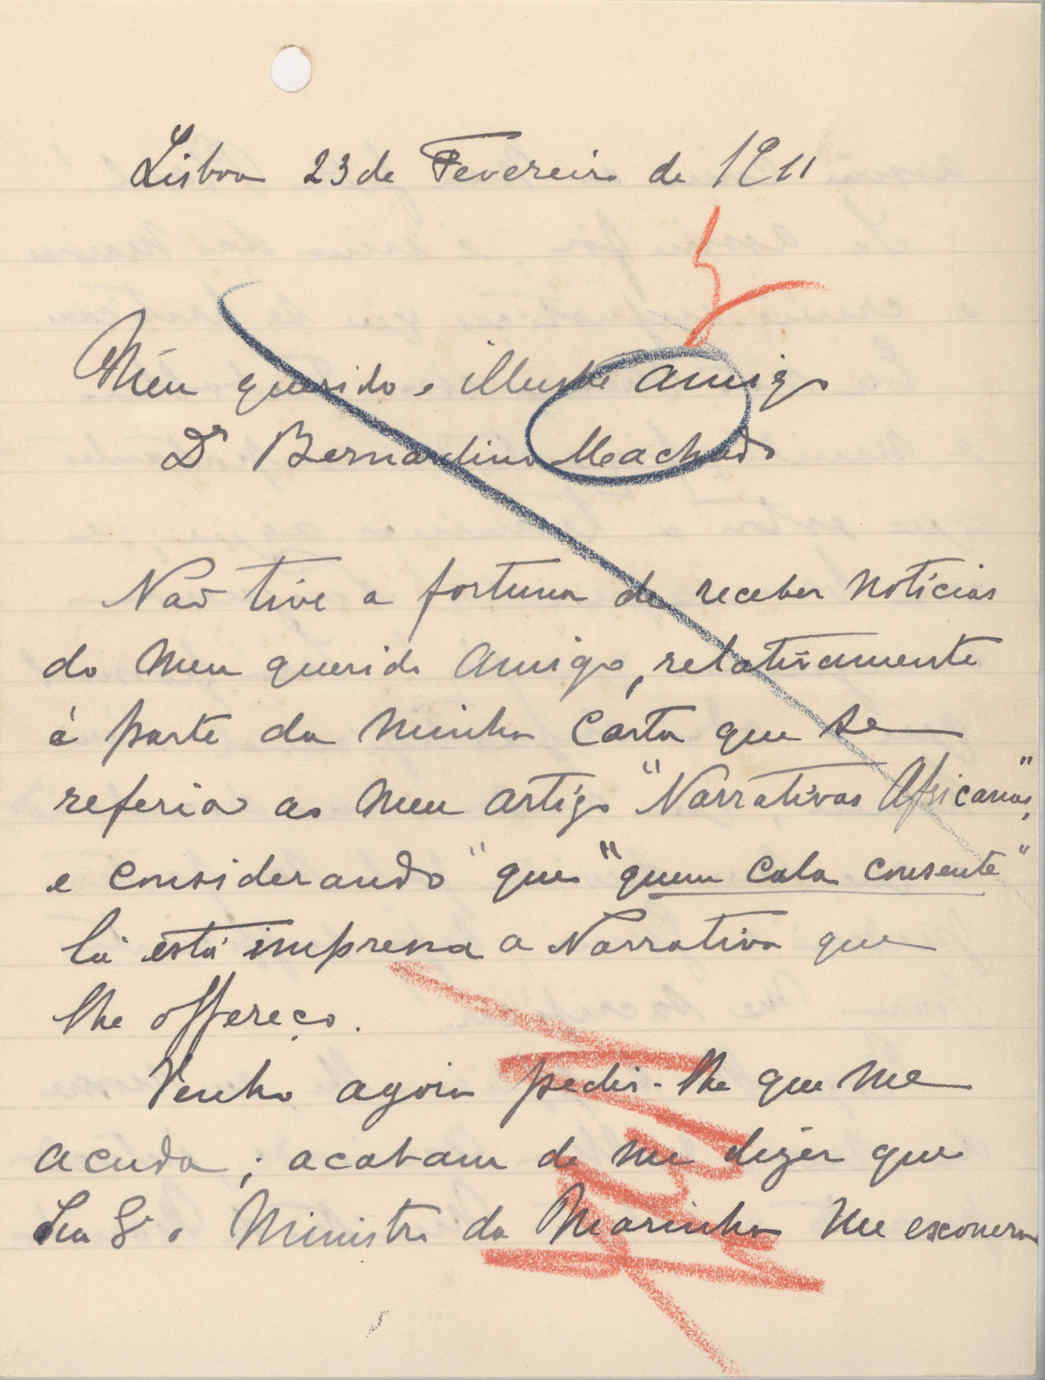 Lisboa 23 de Fevereiro de 1911
Meu querido e illustre Amigo
Dr Bernardino Machado
Não tive a fortuna de receber notícias
do meu querido Amigo, relativamente
á parte da minha Carta que se
referia ao meu artigo "Narrativas Africanas",
e considerando "que "quem cala consente"
lá está impressa a Narrativa que
lhe offereço.
Venho agora pedir-lhe que me
acuda; acabam de me dizer que
Sua Exª o Ministro da Marinha me exonera